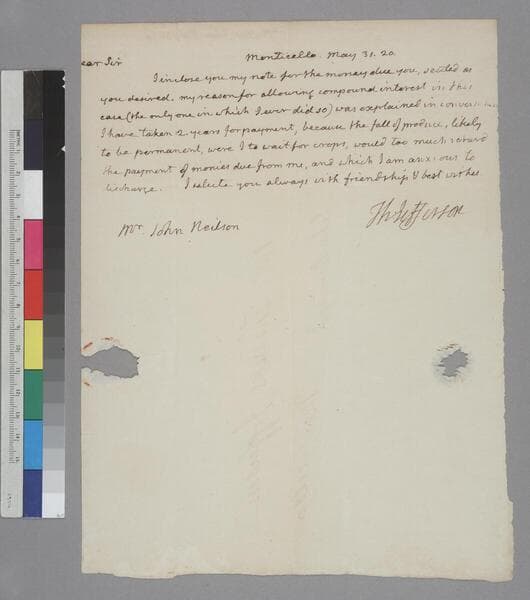 Monticello May 31. 20.
ear Sir
I inclose you my note for the money due you, settled as
you desired. my reason for allowing compound interest in this
case (the only one in which I ever did so) was explained in conversa
I have taken 2 years for payment, because the fall of produce, likely
to be permanent, were I to wait for crops, would too much retard
the payment of monies due from me, and which I am anxious to
discharge. I salute you always with friendship & best wishes
Th Jefferson
Mr. John Neilson